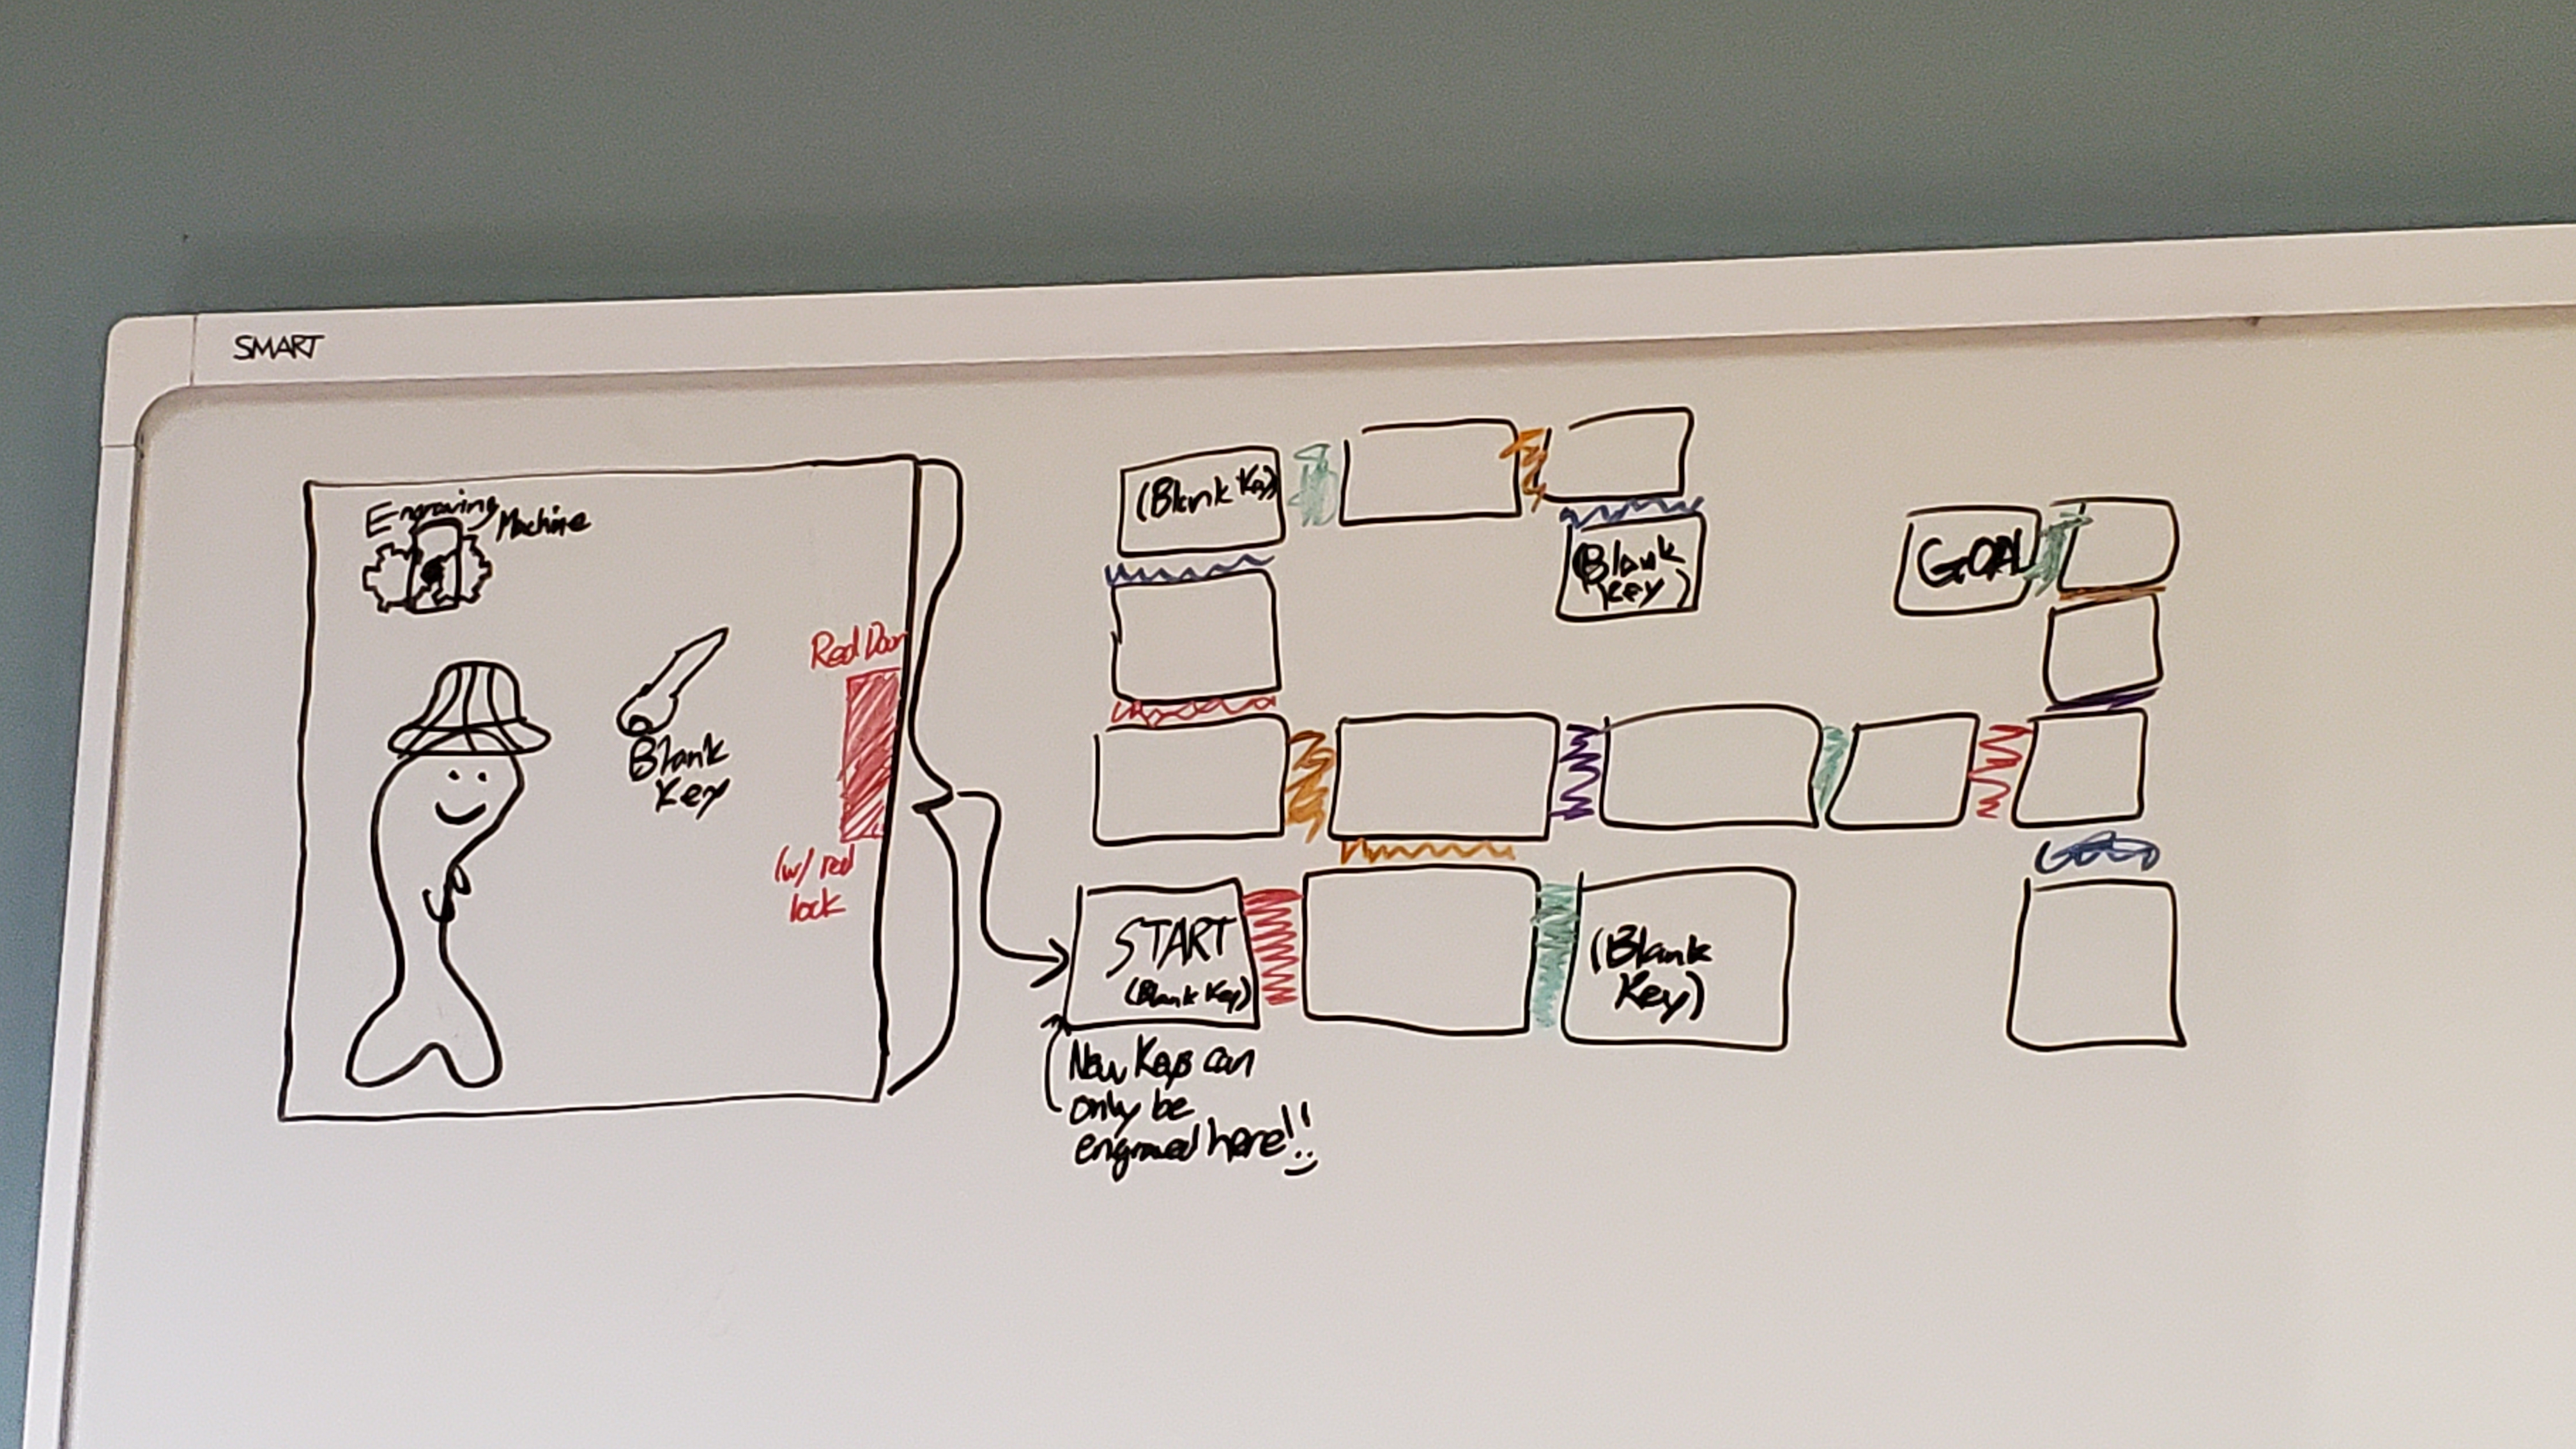 SMART
Engraving
Machine
Red Door
Blank
Key
(w/ red
lock
(Blank Key)
(Blank
Key)
GOAL
START
(Blank Key)
(Blank
Key)
New Keys can
only be
engraved here!!